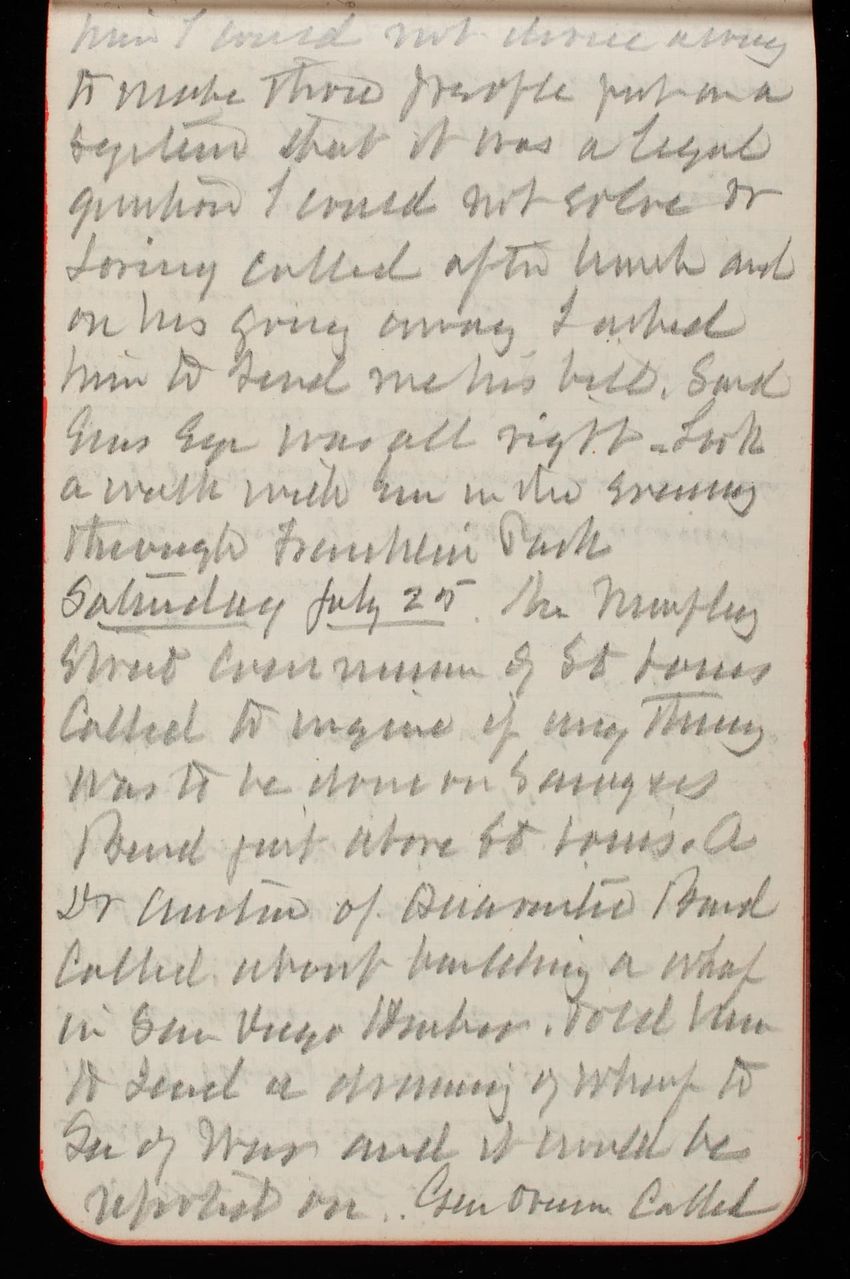 him I could not
to make those people put on a
system that it was a legal
question I could not solve Dr
Loring called after lunch and
on his going away I asked
him to send me his bill. Said
was all right - Took
a walk with Em in the evening
through Franklin Park
Saturday July 25. Mr Murphy
Street Commissioner of St Louis
Called to inquire if any thing
was to be done on Sawyers
Bend just above St Louis. A
Dr Austin of Quarantine Board
Called about building a wharf
in San Diego Harbor. Told him
to send a drawing of wharf to
Sec of War and it would be
reported on. Gen Drum Called